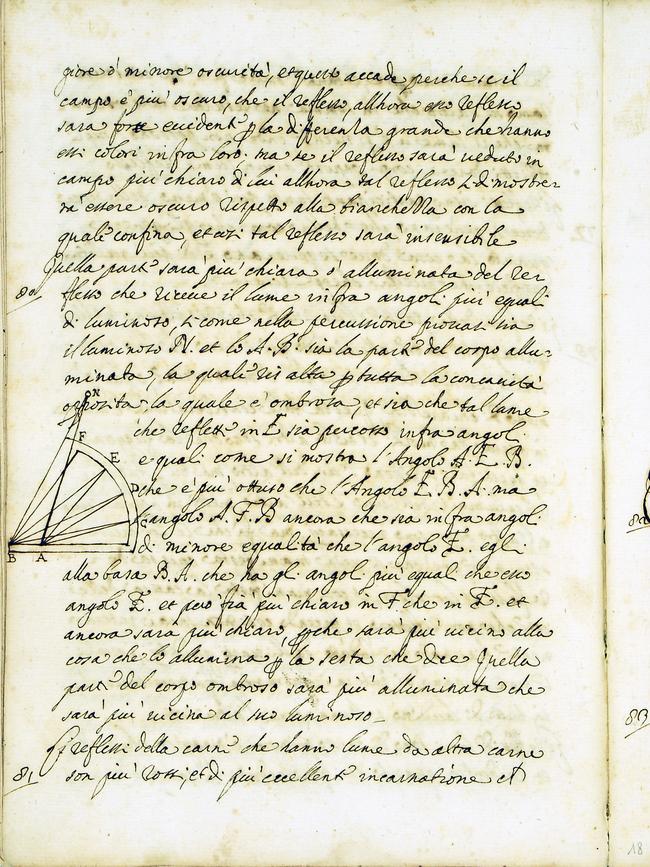 giore ó minore oscurità, et questo accade perche se il
campo è piu' oscuro, che il reflesso, allhora esso reflesso
sara forte euident.e p la differenza grande che hanno
essi colori infra loro. ma se il reflesso sarà ueduto in
campo piu' chiaro di lui allhora tal reflesso si dimostre=
rà essere oscuro rispetto alla bianchezza con la
quale confina, et cosi tal reflesso sarà insensibile
80 Quella parte sarà piu' chiara ò alluminata del re=
flesso che riceue il lume infra angoli piu' equali
di luminoso, si come nella percussione prouasi sia
il luminoso N. et lo A. B. sia la parte del corpo allu=
minata, la quale ris alta p tutta la concauità
opposita la quale e' ombrosa, et sia che tal lume
che reflette in E sia percosso infra angoli
equali come si mostra l'Angolo A. E. B.
che è piu' ottuso che l'Angolo E. B. A. ma
l'angolo A. F. B ancora che sia infra angoli
di minore equalità che l'angolo E. egli
alla basa B. A. che ha gl. angoli piu' equali che esso
angolo E. et però fia piu' chiaro in F che in E. et
ancora sarà piu' chiaro, pche sarà piu' uicino alla
cosa che lo allumina p la sesta che dice Quella
parte del corpo ombroso sarà piu' alluminata che
sarà piu' uicina al suo luminoso_
81 Gli reflessi della carne che hanno lume da altra carne
son piu' rossi, et di piu' eccellente incarnatione ch
N
F
E
D
C
B A
82
83
18